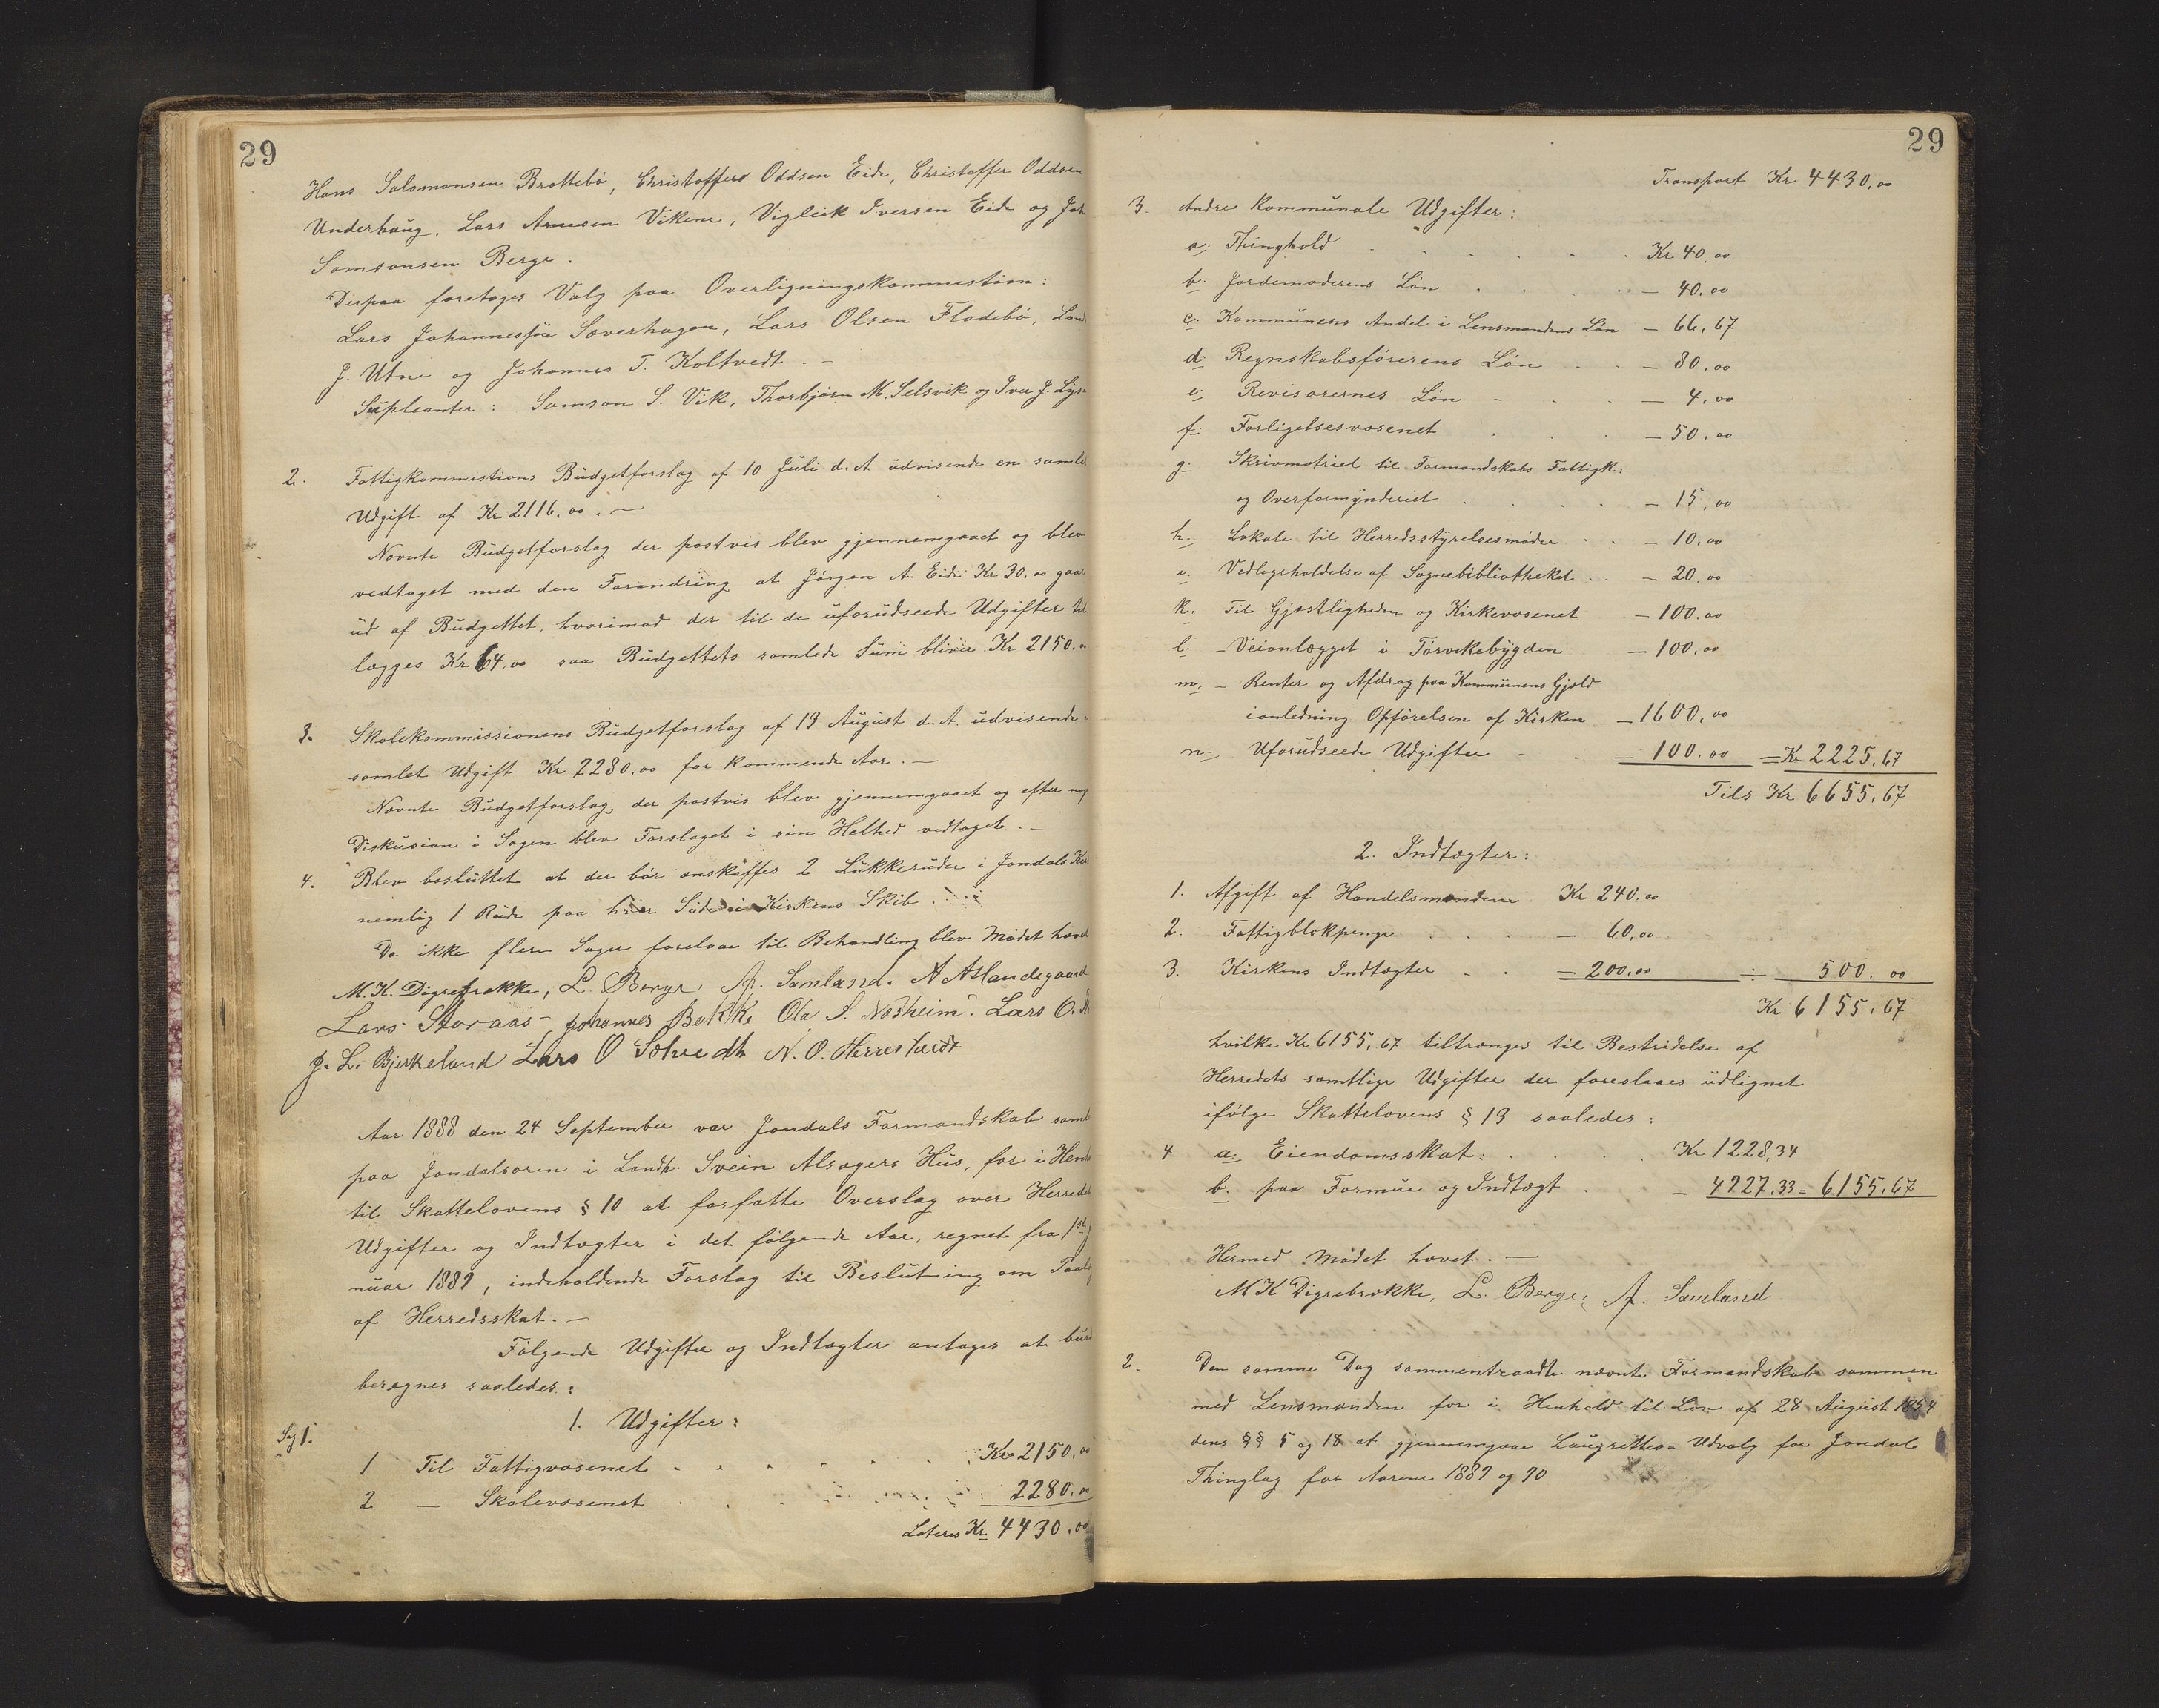 29
Hans Salomonsen Brattebø, Christoffer Oddsen Eide, Christoffer Oddsen
Underhaug, Lars Arnesen Vikene, Vigleik Iversen Eide og Joh
Samsonsen Berge.
Derpaa foretoges Valg paa Overligningskommestion:
Lars Johannessøn Saverhagen, Lars Olsen Fladebø, Lau
J. Utne og Johannes T. Koltvedt. —
Supleanter: Samson S. Vik, Thorbjørn M. Selsvik og Iver J. Lys
2. Fattigkommestions Büdgetforslag af 10 Jüli d. A üdvisende en samle
Udgift af Kr 2116.00. —
Nævnte Büdgetforslag der postvis blev gjennemgaaet og blev
vedtaget med den Forandring at Jørgen A. Eide Kr 30.00 gaar
üd af Büdgettet, hvorimod der til de üforüdseede Udgifter til
lægges Kr 64.00 saa Büdgettets samlede Süm bliver Kr 2150.00
3. Skolekommissionens Büdgetforslag af 13 Aügüst d. A. üdvisende
samlet Udgift Kr 2280.00 for kommende Aar. —
Nævnte Büdgetforslag der postvis blev gjennemgaaet og efter nog
Diskusion i Sagen blev Forslaget i sin Helhed vedtaget. —
4. Blev beslüttet at der bør anskaffes 2 Lükkerüder i Jondals Kir
nemlig 1 Rüde paa hver Side i Kirkens Skib.
Da ikke flere Sager forelaae til Behandling blev Mødet hævet
M. K. Digrebrække, L. Berge, A. Samland. A Aslandegaard
Lars Storaas Johannes Bakke Ola S. Næsheim. Lars O.
J. L. Bjerkeland Lars O Solvedt N. O. Herrestvedt
Aar 1888 den 24 September var Jondals Formandskab saml
paa Jondalsøren i Landh. Svein Alsagers Hüs, for i Hen
til Skattelovens § 10 at forfatte Overslag over Herredets
Udgifter og Indtægter i det følgende Aar, regnet fra 1ste J
nüar 1889, indeholdende Forslag til Beslütning om Paal
af Herredsskat. —
Følgende Udgifter og Indtægter antages at bür
beregnes saaledes:
Sag 1. 1. Udgifter:
1 Til Fattigvæsenet . . . . . Kr 2150.00
2 — Skolevæsenet . . . . 2280.00
Lateres Kr 4430.00
29
Transport Kr 4430.00
3. Andre Kommünale Udgifter:
a. Thinghold . . . . . Kr 40.00
b. Jordemoderens Løn . . . . — 40.00
c. Kommünens Andel i Lensmandens Løn — 66,67
d. Regnskabsførerens Løn . . — 80.00
e. Revisorernes Løn . . — 4.00
f. Forligelsesvæsenet . . . — 50.00
g. Skrivmatriel til Formandskabs Fattigk:
og Overformynderiet . . . . — 15.00
h. Lokale til Herredsstyrelsesmøder . . — 10.00
i. Vedligeholdelse af Sognebibliotheket . . — 20.00
k. Til Gjæstligheden og Kirkevæsenet — 100.00
l. — Veianlægget i Torvikebygden — 100.00
m. — Renter og Afdrag paa Kommünens Gjæld
ianledning Opførelsen af Kirken — 1600.00
n. Uforüdseede Udgifter . . — 100.00 = Kr 2225.67
Tils Kr 6655.67
2. Indtægter:
1. Afgift af Handelsmændene Kr 240.00
2. Fattigblokpenge . . . — 60.00
3. Kirkens Indtægter . . — 200.00 ÷ 500.00
Kr 6155.67
hvilke Kr 6155.67 tiltrænges til Bestridelse af
Herredets samtlige Udgifter der foreslaaes üdlignet
ifølge Skattelovens § 13 saaledes:
4 a. Eiendomsskat: . . . . Kr 1228,34
b. paa Formüe og Indtægt . . — 4927.33 = 6155.67
Hermed Mødet hævet. —
M K Digrebrække, L. Berge, A. Samland
2. Den samme Dag sammentraadte nævnte Formandskab sammen
med Lensmanden for i Henhold til Lov af 28 Aügüst 1854
dens §§ 5 og 18 at gjennemgaae Laugrettes Udvalg for Jondal
Thinglag for Aarene 1889 og 90